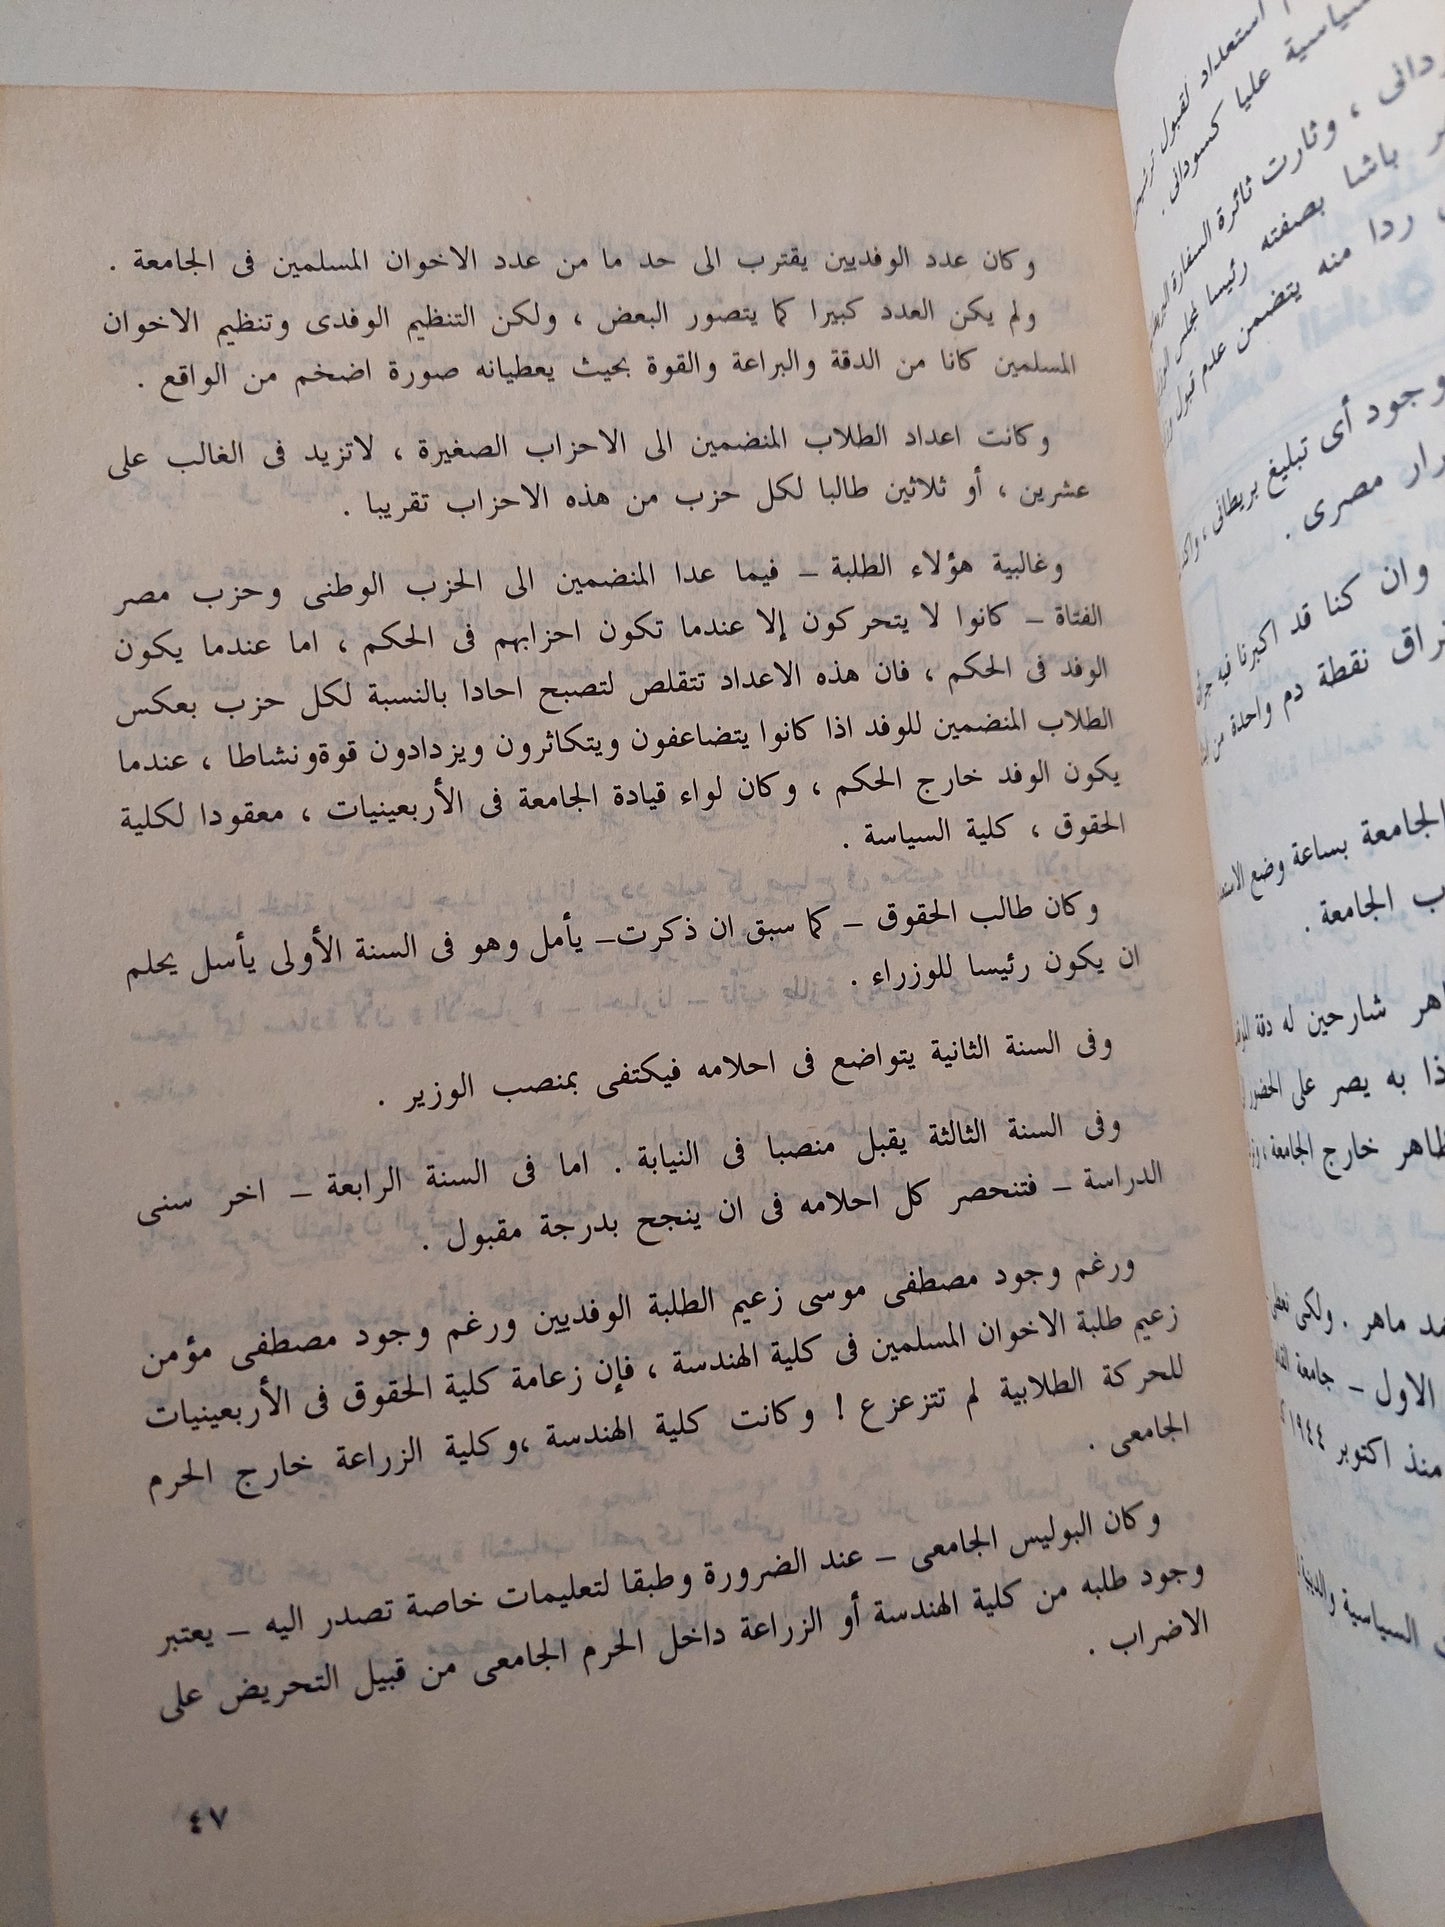 وكان عدد الوفديين يقترب الى حد ما من عدد الاخوان المسلمين فى الجامعة .
ولم يكن العدد كبيرا كما يتصور البعض ، ولكن التنظيم الوفدى وتنظيم الاخوان
المسلمين كانا من الدقة والبراعة والقوة بحيث يعطيانه صورة اضخم من الواقع .
وكانت اعداد الطلاب المنضمين الى الاحزاب الصغيرة ، لاتزيد فى الغالب على
عشرين ، أو ثلاثين طالبا لكل حزب من هذه الاحزاب تقريبا .
وغالبية هؤلاء الطلبة – فيما عدا المنضمين الى الحزب الوطنى وحزب مصر
الفتاة – كانوا لا يتحركون إلا عندما تكون احزابهم فى الحكم ، اما عندما يكون
الوفد فى الحكم ، فان هذه الاعداد تتقلص لتصبح احادا بالنسبة لكل حزب بعكس
الطلاب المنضمين للوفد اذا كانوا يتضاعفون ويتكاثرون ويزدادون قوةونشاطا ، عندما
يكون الوفد خارج الحكم ، وكان لواء قيادة الجامعة فى الأربعينيات ، معقودا لكلية
الحقوق ، كلية السياسة .
وكان طالب الحقوق – كما سبق ان ذكرت– يأمل وهو فى السنة الأولى يأسل يحلم
ان يكون رئيسا للوزراء .
وفى السنة الثانية يتواضع فى احلامه فيكتفى بمنصب الوزير .
وفى السنة الثالثة يقبل منصبا فى النيابة . اما فى السنة الرابعة – اخر سنى
الدراسة – فتنحصر كل احلامه فى ان ينجح بدرجة مقبول .
ورغم وجود مصطفى موسى زعيم الطلبة الوفديين ورغم وجود مصطفى مؤمن
زعيم طلبة الاخوان المسلمين فى كلية الهندسة ، فإن زعامة كلية الحقوق فى الأربعينيات
للحركة الطلابية لم تتزعزع ! وكانت كلية الهندسة ،وكلية الزراعة خارج الحرم
الجامعى .
وكان البوليس الجامعى – عند الضرورة وطبقا لتعليمات خاصة تصدر اليه – يعتبر
وجود طلبه من كلية الهندسة أو الزراعة داخل الحرم الجامعى من قبيل التحريض على
الاضراب .
٤٧
استعداد لقبول
سياسية عليا كسودانى .
، وثارت ثائرة السفارة
باشا بصفته رئيسا لمجلس
ردا منه يتضمن عدم قبول
وجود أى تبليغ بريطانى ،
مصرى .
وان كنا قد اكبرنا فيه
نقطة دم واحدة من
الجامعة بساعة وضع
الجامعة .
شارحين له دقة
به يصر على الحضور
خارج الجامعة ،
ماهر . ولكى
الاول – جامعة
منذ اكتوبر ١٩٤٤
السياسية